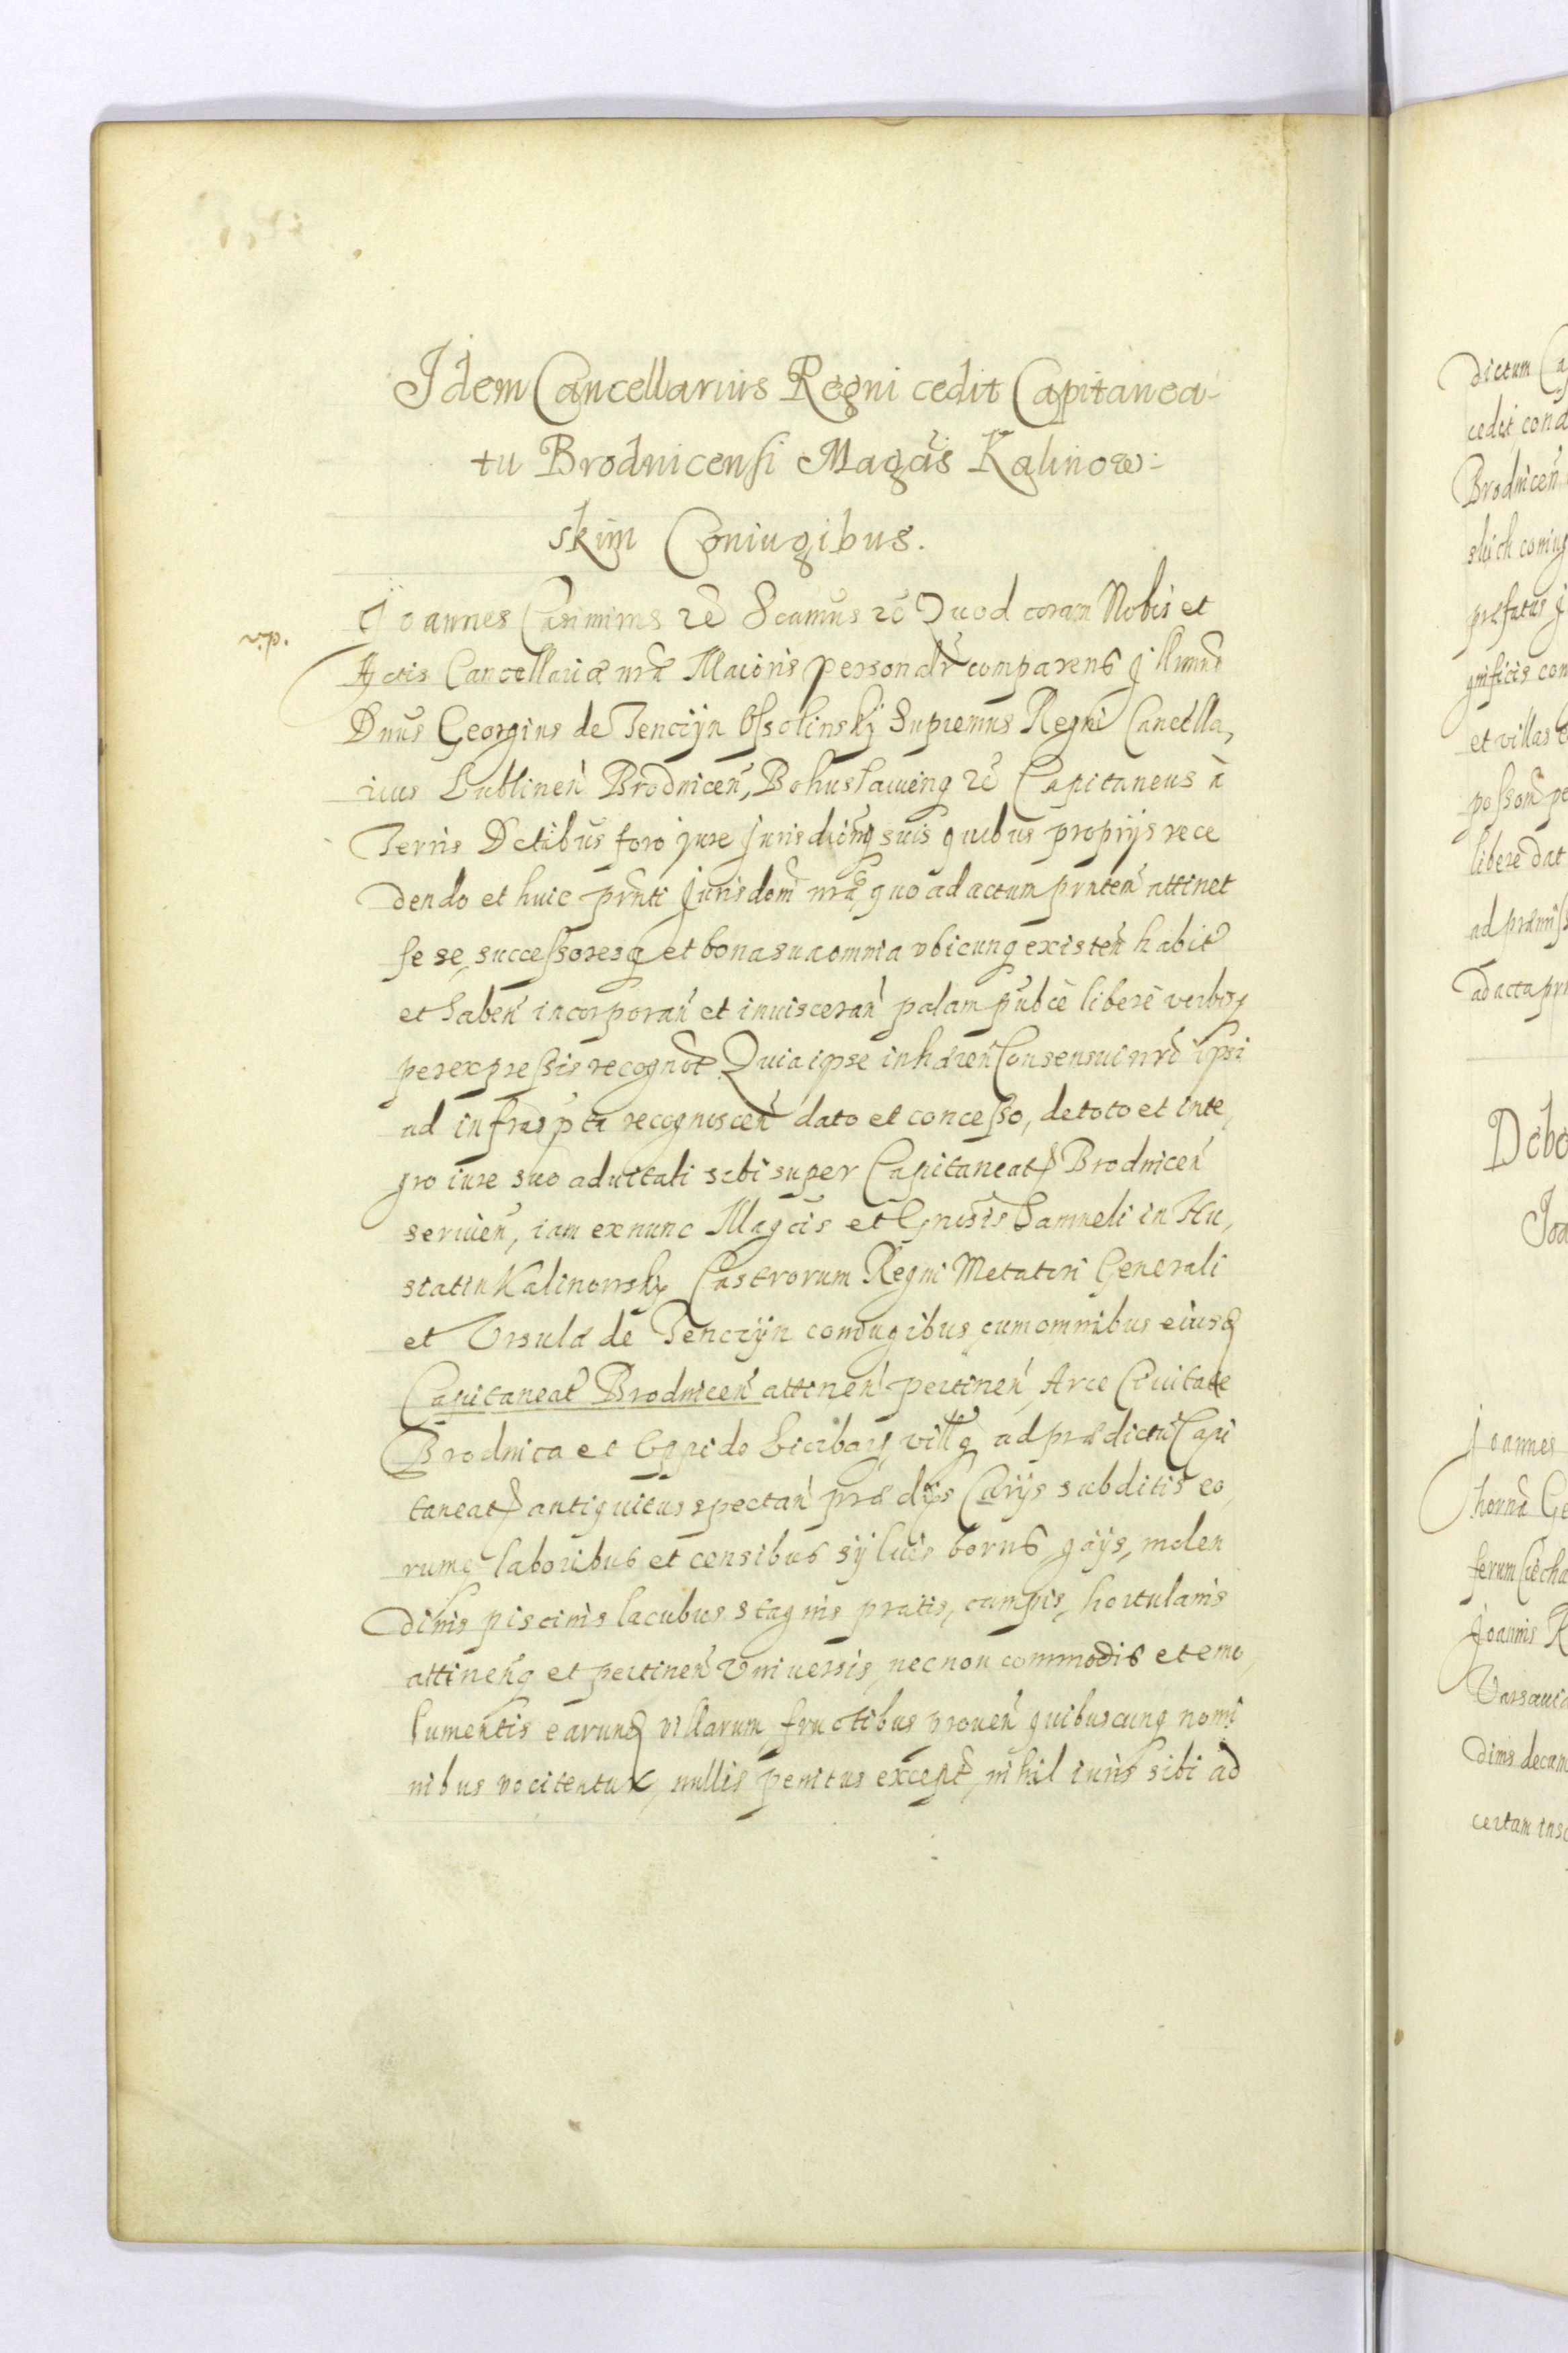 Idem Cancellarius Regni cedit Capitanea-
tu Brodnicensi Magcis Kalinow-
skim Coniugibus.
Joannes Casimirus &c Scamus &c Quod coram Nobis et
Actis Cancellariæ nræ Maioris personalr comparens Jllmus
Dnus Georgius de Tenczyn Ossolinskj Supremus Regni Cancella,
rius Lublinen Brodnicen, Bohuslauienq &c Capitaneus à
Terris Dctibus foro jure Jurisdicionq suis quibus proprijs rece
dendo et huic prnti Jurisdom nræ, quo ad actum prnten attinet
se se, successoresq et bona sua omnia vbicunq existen habit
et haben incorporan et inuisceran palam pubcè liberè verbisq
per expressis recognot Quia ipse inhæren Consensui nro ipsi
ad infrasPta recognoscen dato et concesso, de toto et inte,
gro iure suo aduitali sibi super Capitaneat Brodnicen
seruien, iam ex nunc Magcis et Gnosis Samueli in Hu,
siatin Kalinowsky Castrorum Regni Metatori Generali
et Vrsulæ de Tenczyn coniugibus cum omnibus eiusd
Capitaneat Brodnicen attinen pertinen, Arce Ciuitate
Brodnica et Oppido villisq ad prædictu Capi
taneat antiquitus spectan prædijs Curijs subditis eo,
rumq laboribus et censibus syluis borris, gajs, molen
dinis piscinis lacubus stagnis pratis, campis, hortulanis
attinenq et pertinen Vniuersis, necnon commodis et emo,
lumentis earund villarum fructibus prouen quibuscunq nomi
nibus vocitentur, nullis penitus except, nihil iuris sibi ad
dictum
cedit
Brodnicen
coniug
præfatus
gnificis
et villas
libere dat
ad præmiss
ad acta
Joannes
Joannis
certam